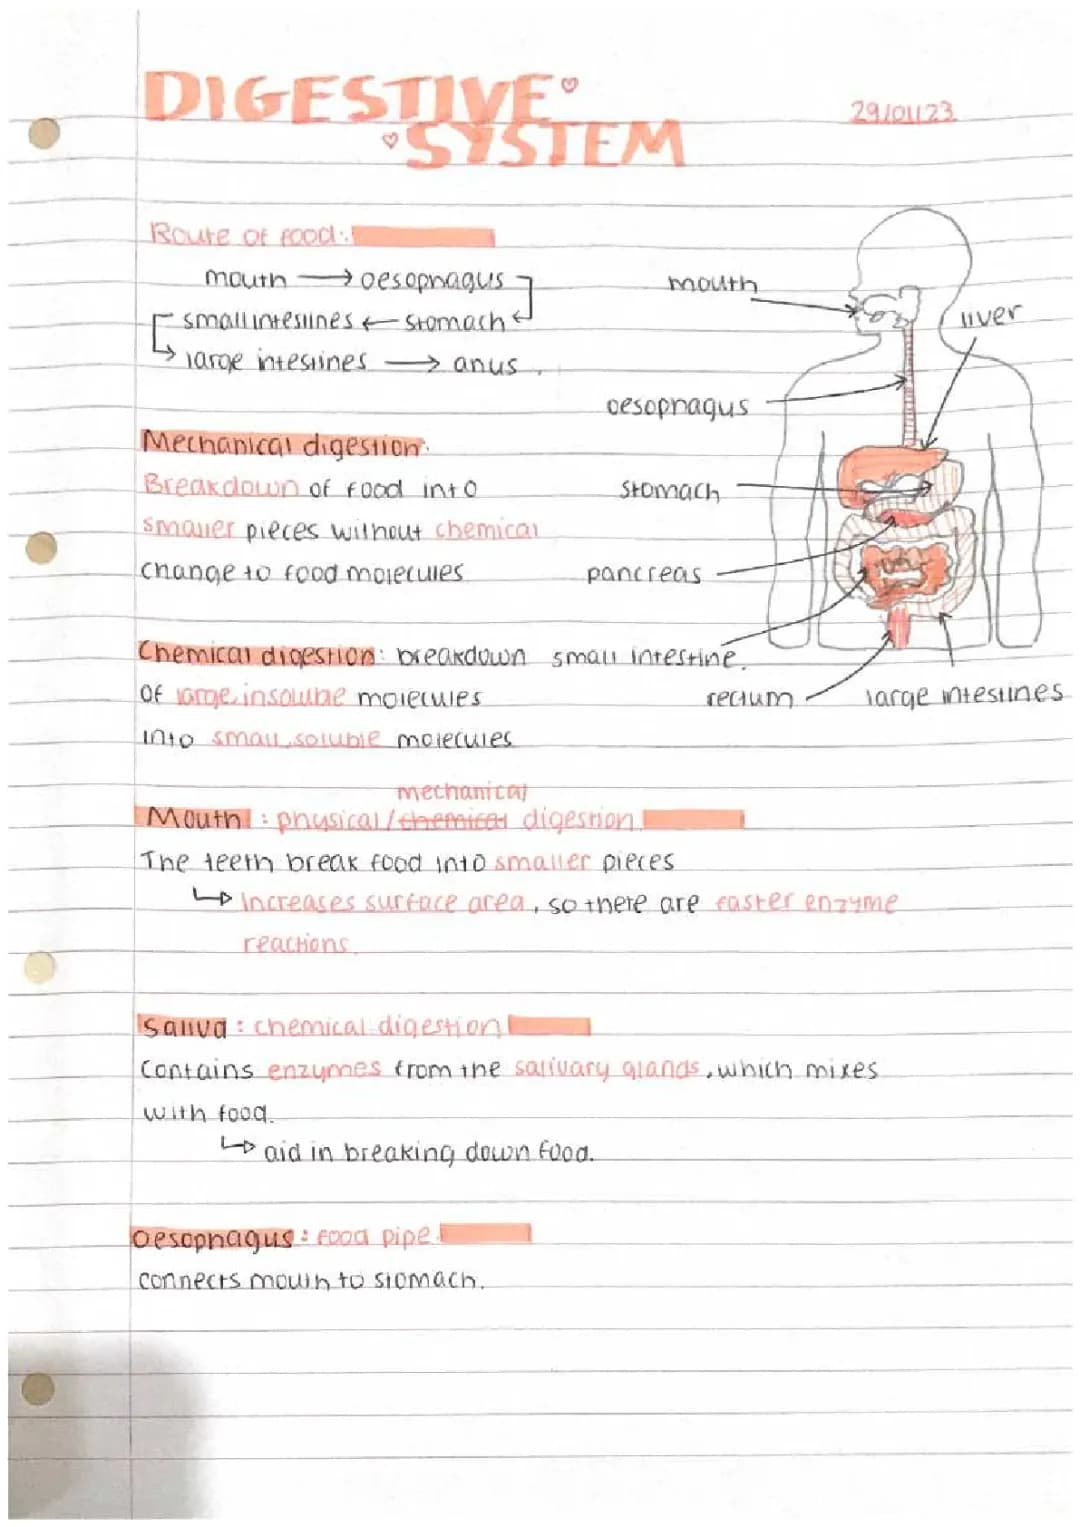 DIGESTIVE
SYSTEM
29/01/23
Route of food:
mouth → oesophagus
small intestines ← stomach
large intestines → anus.
mouth
liver
oesophagus
stomach
pancreas
small intestine.
rectum
large intestines
Mechanical digestion:
Breakdown of food into
smaller pieces without chemical
change to food molecules
Chemical digestion: breakdown
of large, insoluble molecules
into small, soluble molecules
mechanical
Mouth: physical/chemical digestion
The teeth break food into smaller pieces
↳ Increases surface area, so there are faster enzyme
reactions.
Saliva: chemical digestion
Contains enzymes from the salivary glands, which mixes
with food.
↳ aid in breaking down food.
Oesophagus: food pipe
connects mouth to stomach.